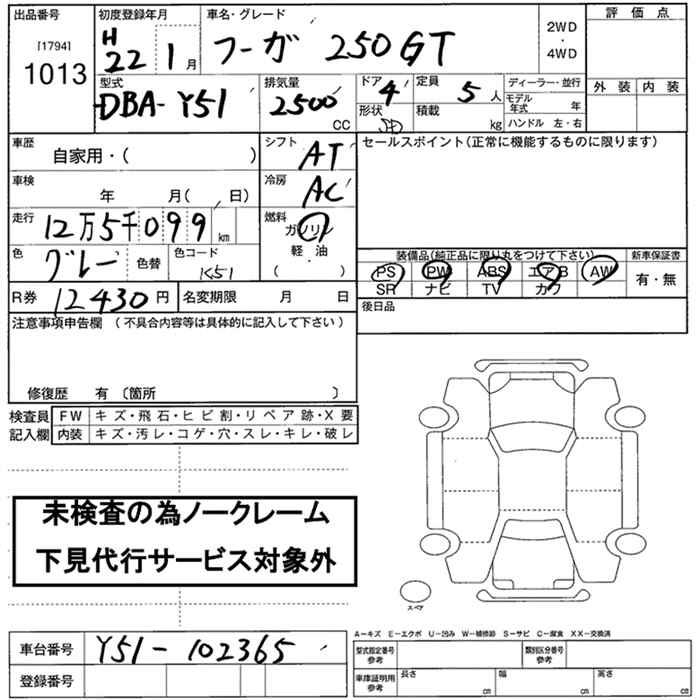 出品番号 初度登録年月 車名・グレード 評価点
[1794] H 22 1月 フーガ 250GT 2WD・4WD
1013
型式 排気量 ドア 定員 ディーラー・並行 外装 内装
DBA-Y51 2500 CC 4 5人 モデル年式 年
形状 積載 kg ハンドル 左・右
車歴 自家用・( ) シフト AT セールスポイント(正常に機能するものに限ります)
車検 年 月( 日) 冷房 AC
走行 12万5千099km 燃料 ガソリン 軽・油 ( ・ )
色 グレー 色替 色コード K51 装備品(純正品に限り丸をつけて下さい) 新車保証書
PS PW ABS エアB AW 有・無
R券 12430円 名変期限 月 日 SR ナビ TV カワ
注意事項申告欄 (不具合内容等は具体的に記入して下さい) 後日品
修復歴 有 〔箇所 〕
検査員 FW キズ・飛石・ヒビ割・リペア跡・X要
記入欄 内装 キズ・汚レ・コゲ・穴・スレ・キレ・破レ
未検査の為ノークレーム
下見代行サービス対象外
スペア
A-キズ E-エクボ U-凹み W-補修跡 S-サビ C-腐食 XX-交換済
車台番号 Y51-102365 型式指定番号 参考 類別区分番号 参考
登録番号 車庫証明用 参考 長さ cm 幅 cm 高さ cm